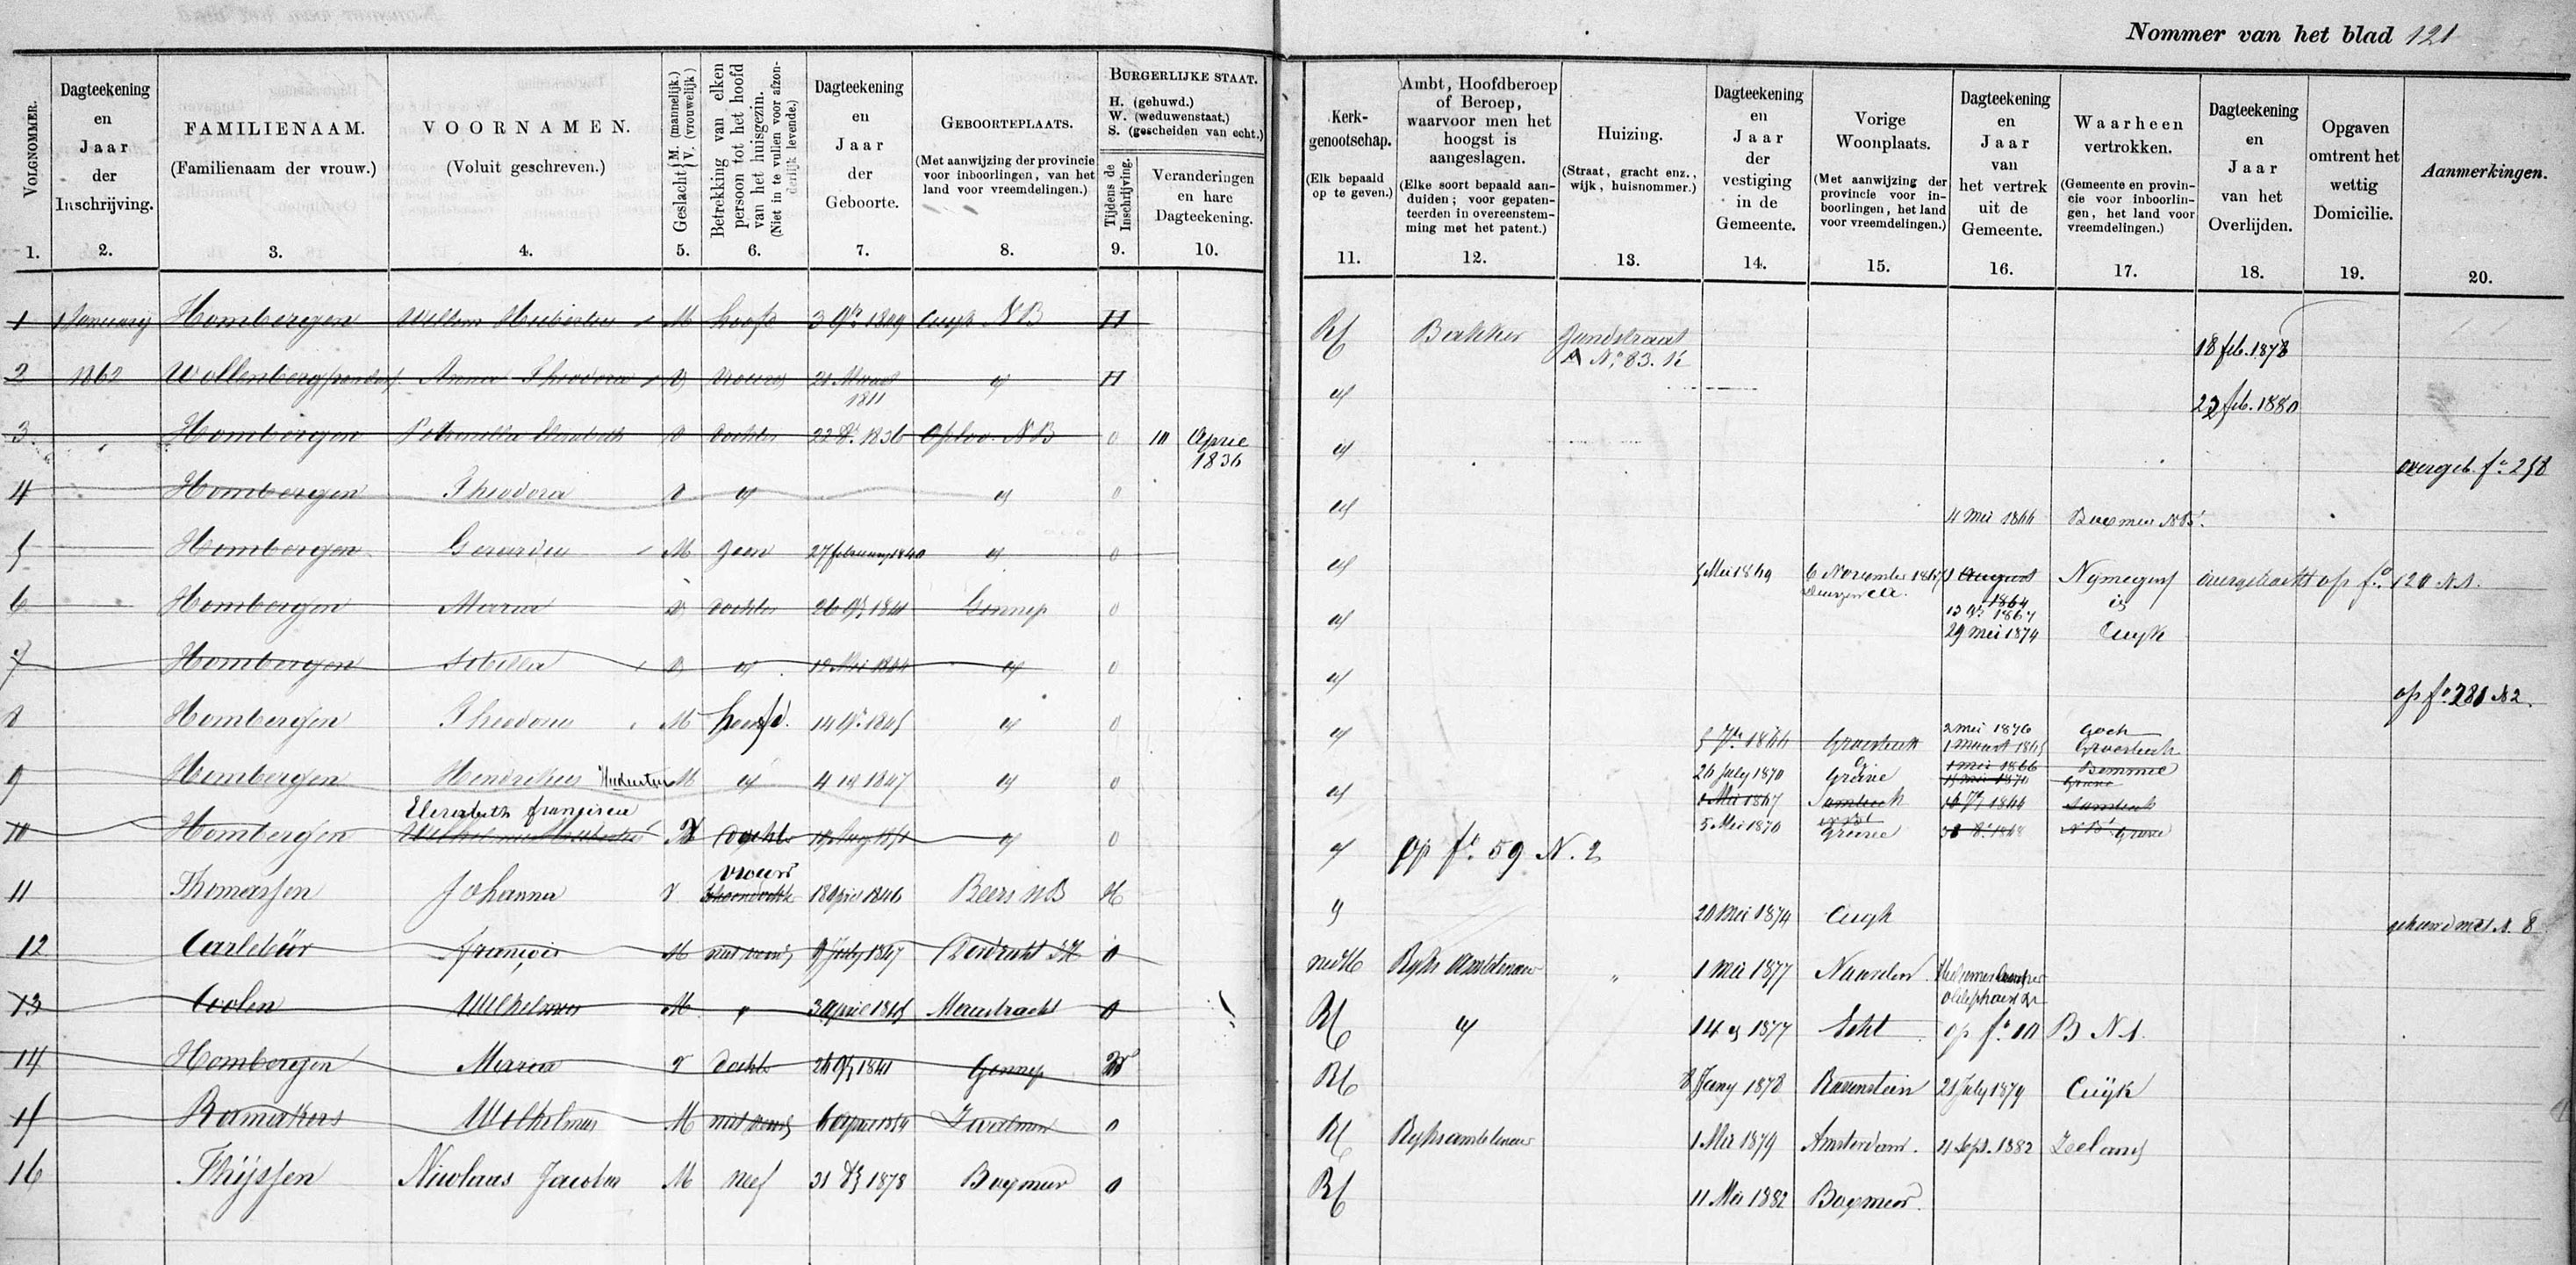 Nommer van het blad 121
VOLGNOMMER.
1.
Dagteekening
en
Jaar
der
Inschrijving.
2.
FAMILIENAAM.
(Familienaam der vrouw.)
3.
VOORNAMEN.
(Voluit geschreven.)
4.
Geslacht { M. (mannelijk.) V. (vrouwelijk)
5.
Betrekking van elken
persoon tot het hoofd
van het huisgezin.
(Niet in te vullen voor afzon-
derlijk levende.)
6.
Dagteekening
en
Jaar
der
Geboorte.
7.
GEBOORTEPLAATS.
(Met aanwijzing der provincie
voor inboorlingen, van het
land voor vreemdelingen.)
8.
BURGERLIJKE STAAT.
H. (gehuwd.)
W. (weduwenstaat.)
S. (gescheiden van echt.)
Tijdens de
Inschrijving.
9.
Veranderingen
en hare
Dagteekening.
10.
Kerk-
genootschap.
(Elk bepaald
op te geven.)
11.
Ambt, Hoofdberoep
of Beroep,
waarvoor men het
hoogst is
aangeslagen.
(Elke soort bepaald aan-
duiden; voor gepaten-
teerden in overeenstem-
ming met het patent.)
12.
Huizing.
(Straat, gracht enz.,
wijk, huisnommer.)
13.
Dagteekening
en
Jaar
der
vestiging
in de
Gemeente.
14.
Vorige
Woonplaats.
(Met aanwijzing der
provincie voor in-
boorlingen, het land
voor vreemdelingen.)
15.
Dagteekening
en
Jaar
van
het vertrek
uit de
Gemeente.
16.
Waarheen
vertrokken.
(Gemeente en provin-
cie voor inboorlin-
gen, het land voor
vreemdelingen.)
17.
Dagteekening
en
Jaar
van het
Overlijden.
18.
Opgaven
omtrent het
wettig
Domicilie.
19.
Aanmerkingen.
20.
1 1 Januarij Hombergen Willem Hubertus M hoofd 1809 Cuyk NB H RC Bakker Zandstraat 18 feb. 1878
A No 83. K
2 1862 Anna Theodora V vrouw 21 Maart H 23 feb. 1880
1811
3 Hombergen Petronella Elisabeth V dochter 1836 Oploo NB 0 10 April overgeb. fo 258
1836
4 Hombergen Theodora V 0 4 Mei 1866 Boxmeer NB
5 Hombergen Gerardus M zoon 27 february 1840 0 5 Mei 1869 6 November 1867 1 August Nymegen overgebracht op fo 120 N1.
1864
1867
6 Hombergen Maria V dochter 1841 Gennep 0 29 Mei 1874 Cuyk
7 Hombergen Sibilla V 12 Mei 1844 0 op fo 281 N2.
8 Hombergen Theodorus M hoofd. 1845 0 2 mei 1876 Goch
1866 Groesbeek 1 maart 1865 Groesbeek
9 Hombergen Hendrikus Hubertus M 1847 0 26 July 1870 Grave 1 Mei 1866 Bemmel
1 Mei 1867 Sambeek 1866 Sambeek
5 Mei 1870 Grave 1868 NB Grave
Elisabeth Francisca
10 Hombergen V dochter 0 op fo 59 N. 2
vrouw
11 Thomassen Johanna V 18 april 1846 Beers NB H 20 Mei 1874 Cuyk gehuwd met N. 8
12 Carlebür François M 9 July 1847 Dordrecht ZH 0 nedH Ryks Ambtenaar 1 Mei 1877 Naarden
13 Coolen Wilhelmus M 3 April 1845 Maastracht 0 RC 14 1877 Echt op fo 10 B N1.
14 Hombergen Maria V dochter 1841 Gennep W RC 8 Jany 1878 Ravenstein 21 July 1879 Cuÿk
15 Ramakers Wilhelmus M 6 April 1854 0 RC Ryksambtenaar 1 Mei 1879 Amsterdam. 4 Sept. 1882 Zeeland
16 Thijssen Nicolaas Jacobus M neef 31 1878 Boxmeer 0 RC 11 Mei 1882 Boxmeer.